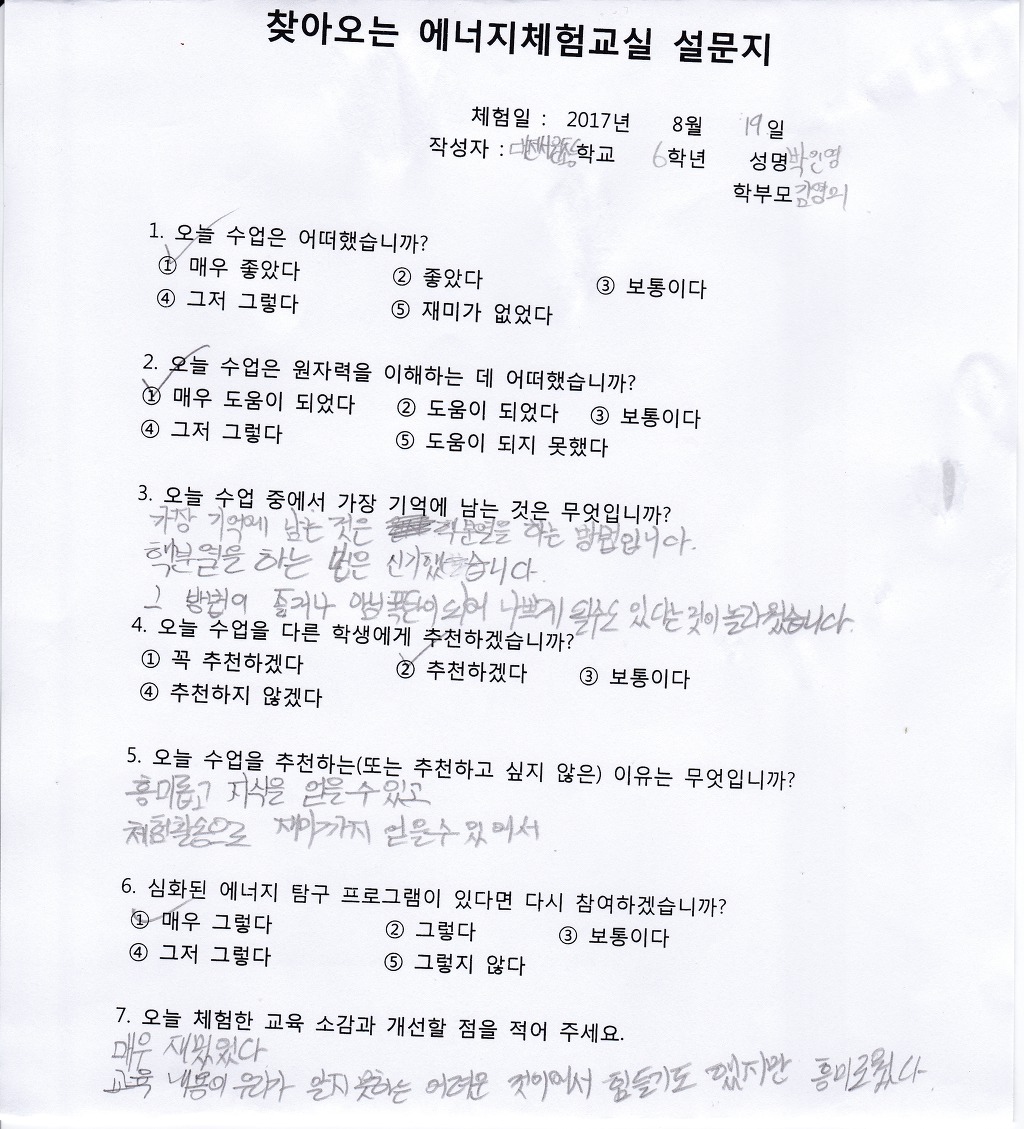 찾아오는 에너지체험교실 설문지
체험일 : 2017년 8월 19일
작성자 : 학교 6학년 성명 박인영
학부모 김영의
1. 오늘 수업은 어떠했습니까?
① 매우 좋았다 ② 좋았다 ③ 보통이다
④ 그저 그렇다 ⑤ 재미가 없었다
2. 오늘 수업은 원자력을 이해하는 데 어떠했습니까?
① 매우 도움이 되었다 ② 도움이 되었다 ③ 보통이다
④ 그저 그렇다 ⑤ 도움이 되지 못했다
3. 오늘 수업 중에서 가장 기억에 남는 것은 무엇입니까?
가장 기억에 남는 것은 핵분열을 하는 방법입니다.
핵분열을 하는 법은 신기했습니다.
그 방법이 되어 나쁘게 될수도 있다는 것이 놀라웠습니다.
4. 오늘 수업을 다른 학생에게 추천하겠습니까?
① 꼭 추천하겠다 ② 추천하겠다 ③ 보통이다
④ 추천하지 않겠다
5. 오늘 수업을 추천하는(또는 추천하고 싶지 않은) 이유는 무엇입니까?
흥미롭고 지식을 얻을 수 있고
체험활동으로 재미까지 얻을 수 있어서
6. 심화된 에너지 탐구 프로그램이 있다면 다시 참여하겠습니까?
① 매우 그렇다 ② 그렇다 ③ 보통이다
④ 그저 그렇다 ⑤ 그렇지 않다
7. 오늘 체험한 교육 소감과 개선할 점을 적어 주세요.
매우 재밌었다
교육 내용이 우리가 알지 못하는 어려운 것이어서 힘들기도 했지만 흥미로웠다.